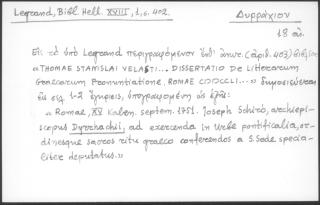 Legrand, Bibl. Hell. XVIII, 1, σ. 402.
Δυρράχιον
18 αἰ.
Εἰς τὸ ὑπὸ Legrand περιγραφόμενον ὑπ' ἀριθ. (ἀριθ. 403) βιβλίον
«THOMAE STANISLAI VELASTI... DISSERTATIO DE Litterarum
Graecarum Pronuntiatione, ROMAE CIƆIƆCCLI...» δημοσιεύεται
εἰς σελ. 1-2 ἔγκρισις, ὑπογραφομένη ὡς ἑξῆς:
«Romae, XV Kalen. septem. 1751. Joseph Schirò, archiepi-
scopus Dyrrhachii, ad exercenda in Urbe pontificalia, or-
dinesque sacros ritu graeco conferendos a S. Sede specia-
liter deputatus.»